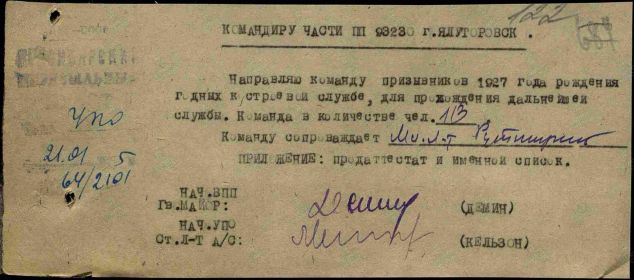 122
КОМАНДИРУ ЧАСТИ ПП 93230 г.ЯЛУТОРОВСК .
Направляю команду призывников 1927 года рождения
годных к/строевой службе, для прохождения дальнейшей
службы. Команда в количестве чел. 113
Команду сопроваждает Мл. л-т
ПРИЛОЖЕНИЕ: продаттестат и именной список.
УПО
21.01 5
64/2101
НАЧ.ВПП
Гв.МАЙОР: (ДЕМИН)
НАЧ.УПО
Ст.Л-Т А/С: (КЕЛЬЗОН)